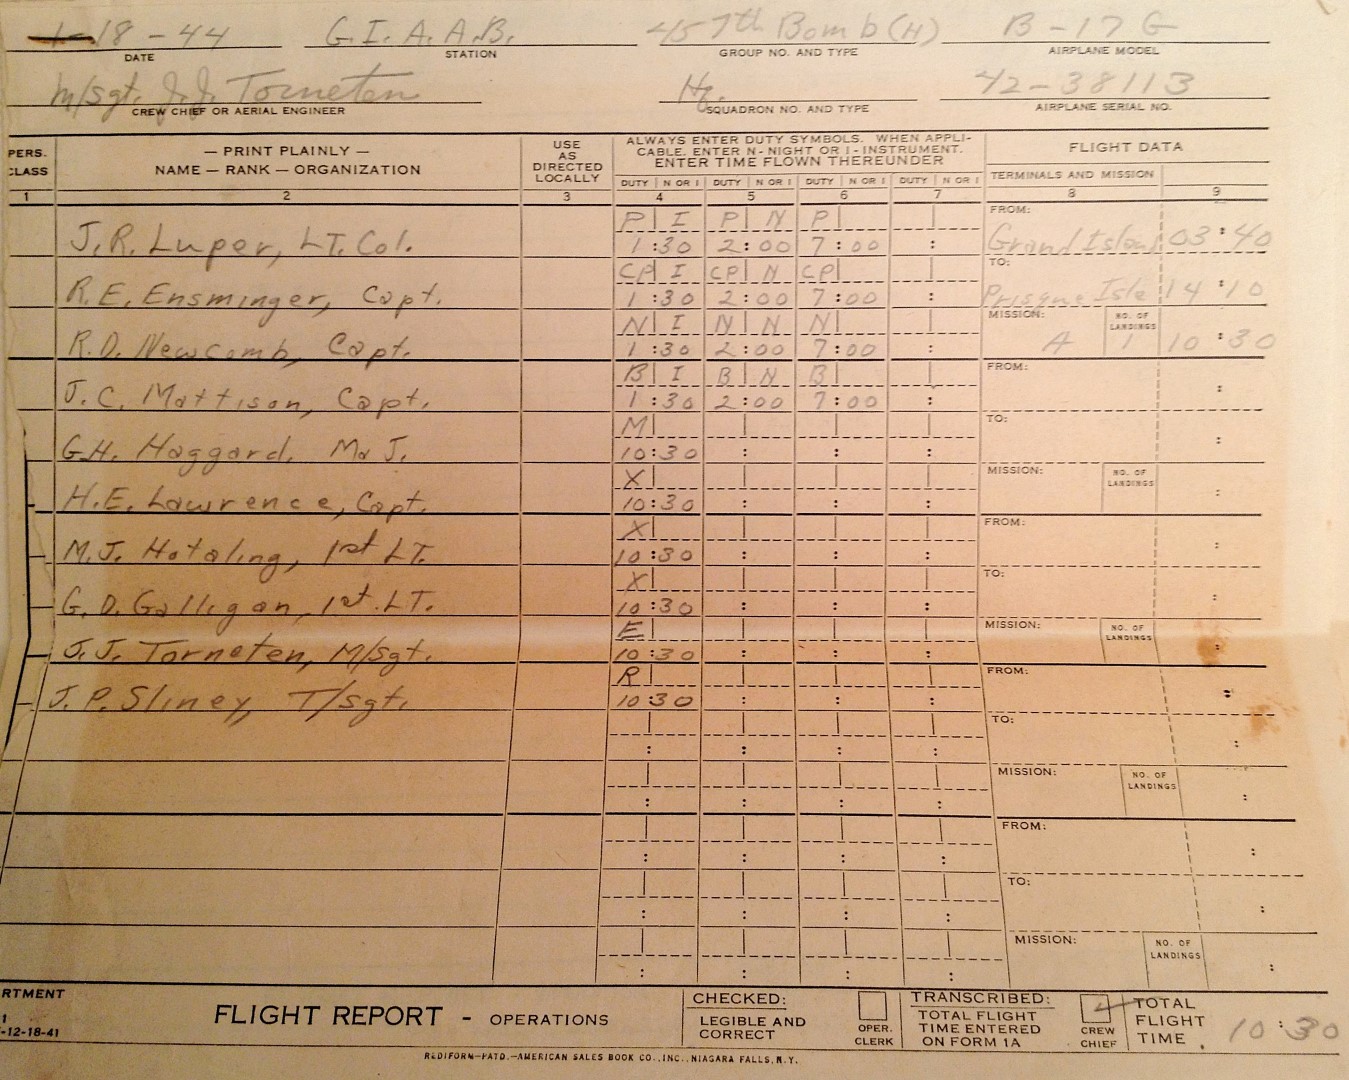 1-18-44 G.I.A.A.B. 457th Bomb (H) B-17G
DATE STATION GROUP NO. AND TYPE AIRPLANE MODEL
M/Sgt. J.J. Torneten Hq. 42-38113
CREW CHIEF OR AERIAL ENGINEER SQUADRON NO. AND TYPE AIRPLANE SERIAL NO.
PERS. CLASS — PRINT PLAINLY — NAME — RANK — ORGANIZATION USE AS DIRECTED LOCALLY ALWAYS ENTER DUTY SYMBOLS. WHEN APPLI-
CABLE. ENTER N-NIGHT OR I-INSTRUMENT.
ENTER TIME FLOWN THEREUNDER FLIGHT DATA
DUTY N OR I DUTY N OR I DUTY N OR I DUTY N OR I TERMINALS AND MISSION
1 2 3 4 5 6 7 8 9
P I P N P FROM:
J.R. Luper, LT. Col. 1:30 2:00 7:00 : Grand Island 03:40
CP I CP N CP TO:
R.E. Ensminger, Capt. 1:30 2:00 7:00 : Prisque Isle 14:10
N I N N N MISSION: NO. OF LANDINGS
R.D. Newcomb, Capt. 1:30 2:00 7:00 : A 1 10:30
B I B N B FROM:
J.C. Mattison, Capt. 1:30 2:00 7:00 : :
M TO:
G.H. Haggard, MaJ. 10:30 : : : :
X MISSION: NO. OF LANDINGS
H.E. Lawrence, Capt. 10:30 : : : :
X FROM:
M.J. Hotaling, 1st LT. 10:30 : : : :
X TO:
G.D. Galligan, 1st. LT. 10:30 : : : :
E MISSION: NO. OF LANDINGS
J.J. Torneten, M/Sgt. 10:30 : : : :
R FROM:
J.P. Sliney, T/sgt. 10:30 : : : :
TO:
: : : : :
MISSION: NO. OF LANDINGS
: : : : :
FROM:
: : : : :
TO:
: : : : :
MISSION: NO. OF LANDINGS
: : : : :
RTMENT
1
-12-18-41
FLIGHT REPORT - OPERATIONS
CHECKED:
LEGIBLE AND
CORRECT
OPER.
CLERK
TRANSCRIBED:
TOTAL FLIGHT
TIME ENTERED
ON FORM 1A
CREW
CHIEF
TOTAL
FLIGHT
TIME. 10:30
REDIFORM—PATD.—AMERICAN SALES BOOK CO., INC., NIAGARA FALLS, N.Y.